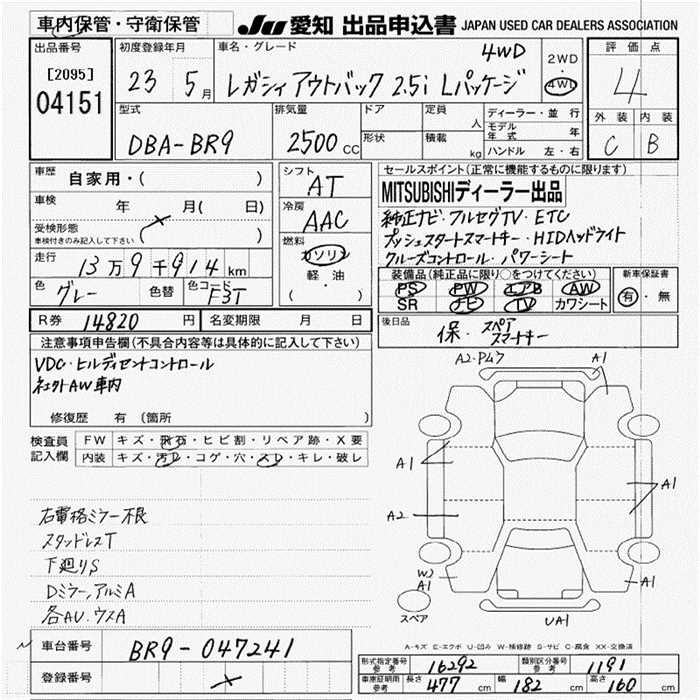 車内保管・守衛保管 JU 愛知 出品申込書 JAPAN USED CAR DEALERS ASSOCIATION
出品番号
[2095]
04151
初度登録年月
23 5月
車名・グレード
4WD
レガシィ アウトバック 2.5i Lパッケージ
2WD
4WD
評価点
4
外装 内装
C B
型式
DBA-BR9
排気量
2500cc
ドア
形状
定員 人
積載 kg
ディーラー・並行
モデル年式 年
ハンドル 左・右
車歴 自家用・( )
車検 年 月( 日)
受検形態
車検付きのみ記入して下さい
走行 13万9千914km
色 グレー 色替 色コード F3T
シフト
AT
冷房
AAC
燃料
ガソリン
軽・油
( )
セールスポイント(正常に機能するものに限ります)
MITSUBISHIディーラー出品
純正ナビ・フルセグTV・ETC
プッシュスタートスマートキー・HIDヘッドライト
クルーズコントロール・パワーシート
装備品(純正品に限り○をつけてください)
PS PW エアB AW
SR ナビ TV カワシート
新車保証書
有・無
R券 14820円 名変期限 月 日
後日品
保・スペアスマートキー
注意事項申告欄(不具合内容等は具体的に記入して下さい)
VDC・ヒルディセントコントロール
社外AW車内
修復歴 有 (箇所 )
検査員記入欄
FW キズ・飛石・ヒビ割・リペア跡・X要
内装 キズ・汚レ・コゲ・穴・スレ・キレ・破レ
右電格ミラー不良
スタッドレスT
下廻りS
Dミラー,アルミA
各AU.ウスA
A2・Pムラ
A1
A1
A1
A2
W2
A1
A1
UA1
スペア
A-キズ E-エクボ U-凹み W-補修跡 S-サビ C-腐食 XX-交換済
車台番号 BR9-047241
登録番号
形式指定番号 参考 16292 類別区分番号 参考 1191
車庫証明用 参考 長さ 477cm 幅 182cm 高さ 160cm